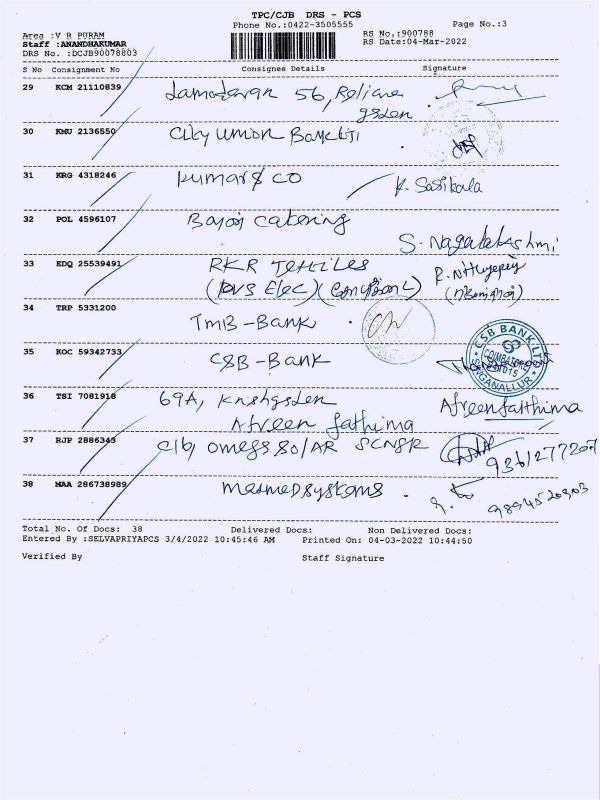 TPC/CJB DRS - PCS
Phone No.:0422-3505555
Page No.:3
Area :V R PURAM
Staff :ANANDHAKUMAR
DRS No. :DCJB90078803
RS No.:900788
RS Date:04-Mar-2022
S No Consignment No Consignee Details Signature
29 KCM 21110839 56, Reliance
30 KMU 2136550 City Union Bank
31 KRG 4318246 Kumar & CO K. Sasikala
32 POL 4596107 Bajaj catering
S. Nagalakshmi
33 EDQ 25539491 RKR Textiles
34 TRP 5331200
TMB - Bank
35 KOC 59342733 CSB - Bank
CSB BANK LTD
COIMBATORE
SINGANALLUR
36 TSI 7081918 69A,
Afreen fathima Afreen faithima
37 RJP 2886343 omega solAR
38 MAA 286738989 systems
9894520303
Total No. Of Docs: 38 Delivered Docs: Non Delivered Docs:
Entered By :SELVAPRIYAPCS 3/4/2022 10:45:46 AM Printed On: 04-03-2022 10:44:50
Verified By Staff Signature